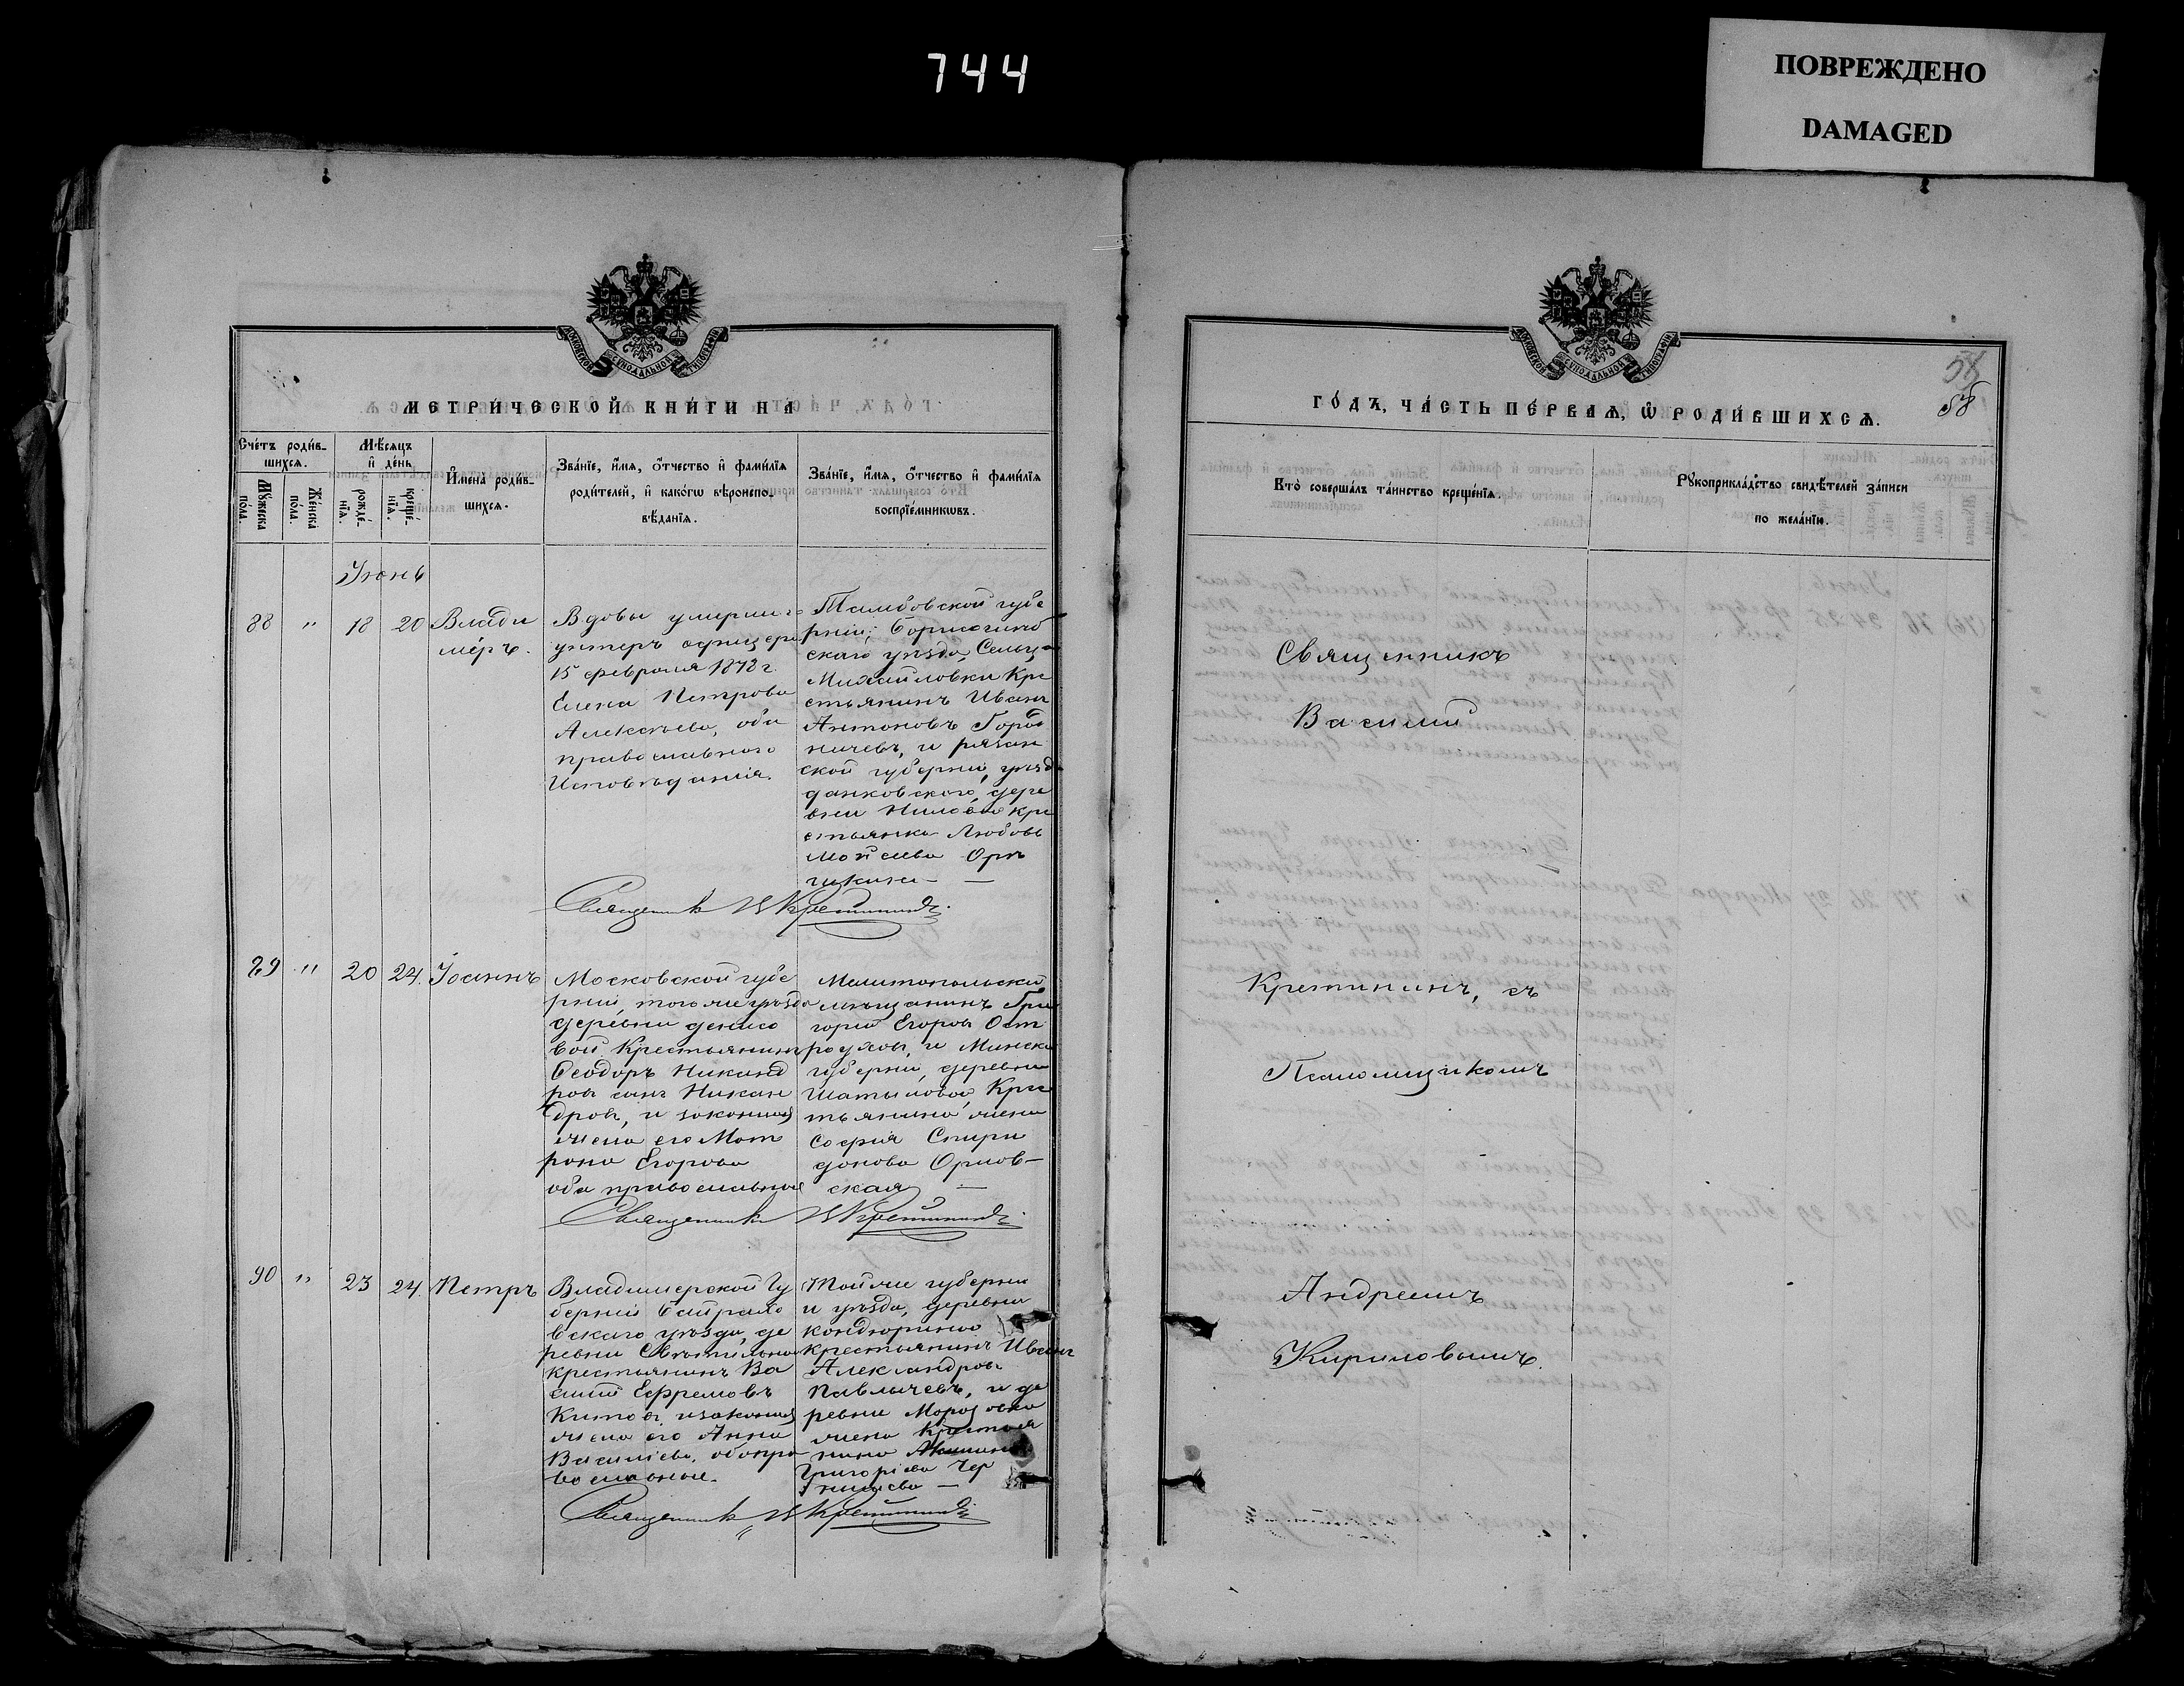 744
ПОВРЕЖДЕНО
DAMAGED
МОСКОВСКОЙ СУНОДАЛЬНОЙ ТИПОГРАФІИ
МЕТРИ́ЧЕСКОЙ КНИ́ГИ НА
Сче́тъ роди́в-
шихсѧ.
Мѣ́сѧцъ
и҆ де́нь
Мꙋ́жеска по́ла.
Же́нска по́ла.
рожде́-
нїѧ.
креще́-
нїѧ.
И҆мена̀ роди́в-
шихсѧ.
Зва́нїе, и҆́мѧ, ѻ҆́тчество и҆ фами́лїѧ
роди́телей, и҆ како́гѡ вѣроиспо-
вѣ́данїѧ.
Зва́нїе, и҆́мѧ, ѻ҆́тчество и҆ фами́лїѧ
воспрїе́мникѡвъ.
Іюнь
88 " 18 20 Влади
міръ.
Вдовы умерша
унтеръ офицера
15 февраля 1872 г.
Елена Петрова
Алексѣева, оба
православнаго
Исповѣданія.
Тамбовской губе
рніи, Борисоглѣб
скаго уѣзда, Сельца
Михайловки Кре
стьянинъ Иванъ
Антоновъ
ничевъ, и рязан
ской губерніи, уѣзда
данковскаго, дере
вни кре
стьянка Любовь
Мойсеева
Священникъ В Кретининъ
89 " 20 24. Іоаннъ
Московской губе
рніи, того же уѣзда
деревни денисо
вой Крестьянинъ
Ѳеодоръ Никанд
ровъ сынъ Никан
дровъ, и законная
жена его Мат
рона Егорова
оба православные
Мелитопольскій
мѣщанинъ Гри
горій Егоровъ Ост
роуховъ, и Минской
губерніи, деревни
Шатиловой, Крес
тьянина жена
Софія Спири
донова Орлов-
ская —
Священникъ В Кретининъ
90 " 23 24. Петръ
Владимерской Гу
берніи
вскаго уѣзда, де
ревни
крестьянинъ Ва
силій Ефремовъ
Китовъ, и законная
жена его Анна
Василіева, оба пра
вославные.
Той же губерніи
и уѣзда, деревни
кондюрино
крестьянинъ Иванъ
Александровъ
Павлычевъ, и де
ревни Морозовка
жена Крестья
нина
Григоріева Чер
нышева —
Священникъ В Кретининъ
МОСКОВСКОЙ СУНОДАЛЬНОЙ ТИПОГРАФІИ
58
58
ГО́ДЪ, ЧА́СТЬ ПЕ́РВАѦ, Ѡ҆ РОДИ́ВШИХСѦ.
Кто̀ соверша́лъ та́инство креще́нїѧ.
Рꙋкоприкла́дство свидѣ́телей за́писи
по жела́нїю.
Священникъ
Василій
Кретининъ, съ
Псаломщикомъ
Андреемъ
Кириловымъ.